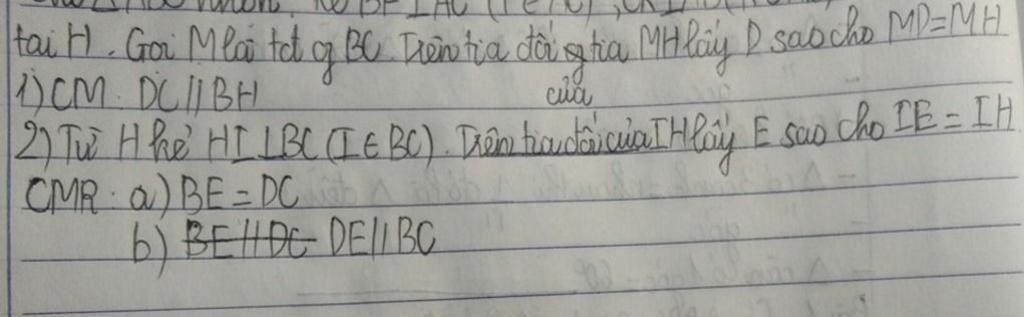 nhọn. Kẻ BF ⊥ AC
tại H. Gọi M là tđ of BC. Trên tia đối of tia MH lấy D sao cho MD=MH
1) CM: DC // BH
của
2) Từ H kẻ HI ⊥ BC (I ∈ BC). Trên tia đối của IH lấy E sao cho IE = IH
CMR: a) BE = DC
b) BE // DC DE // BC